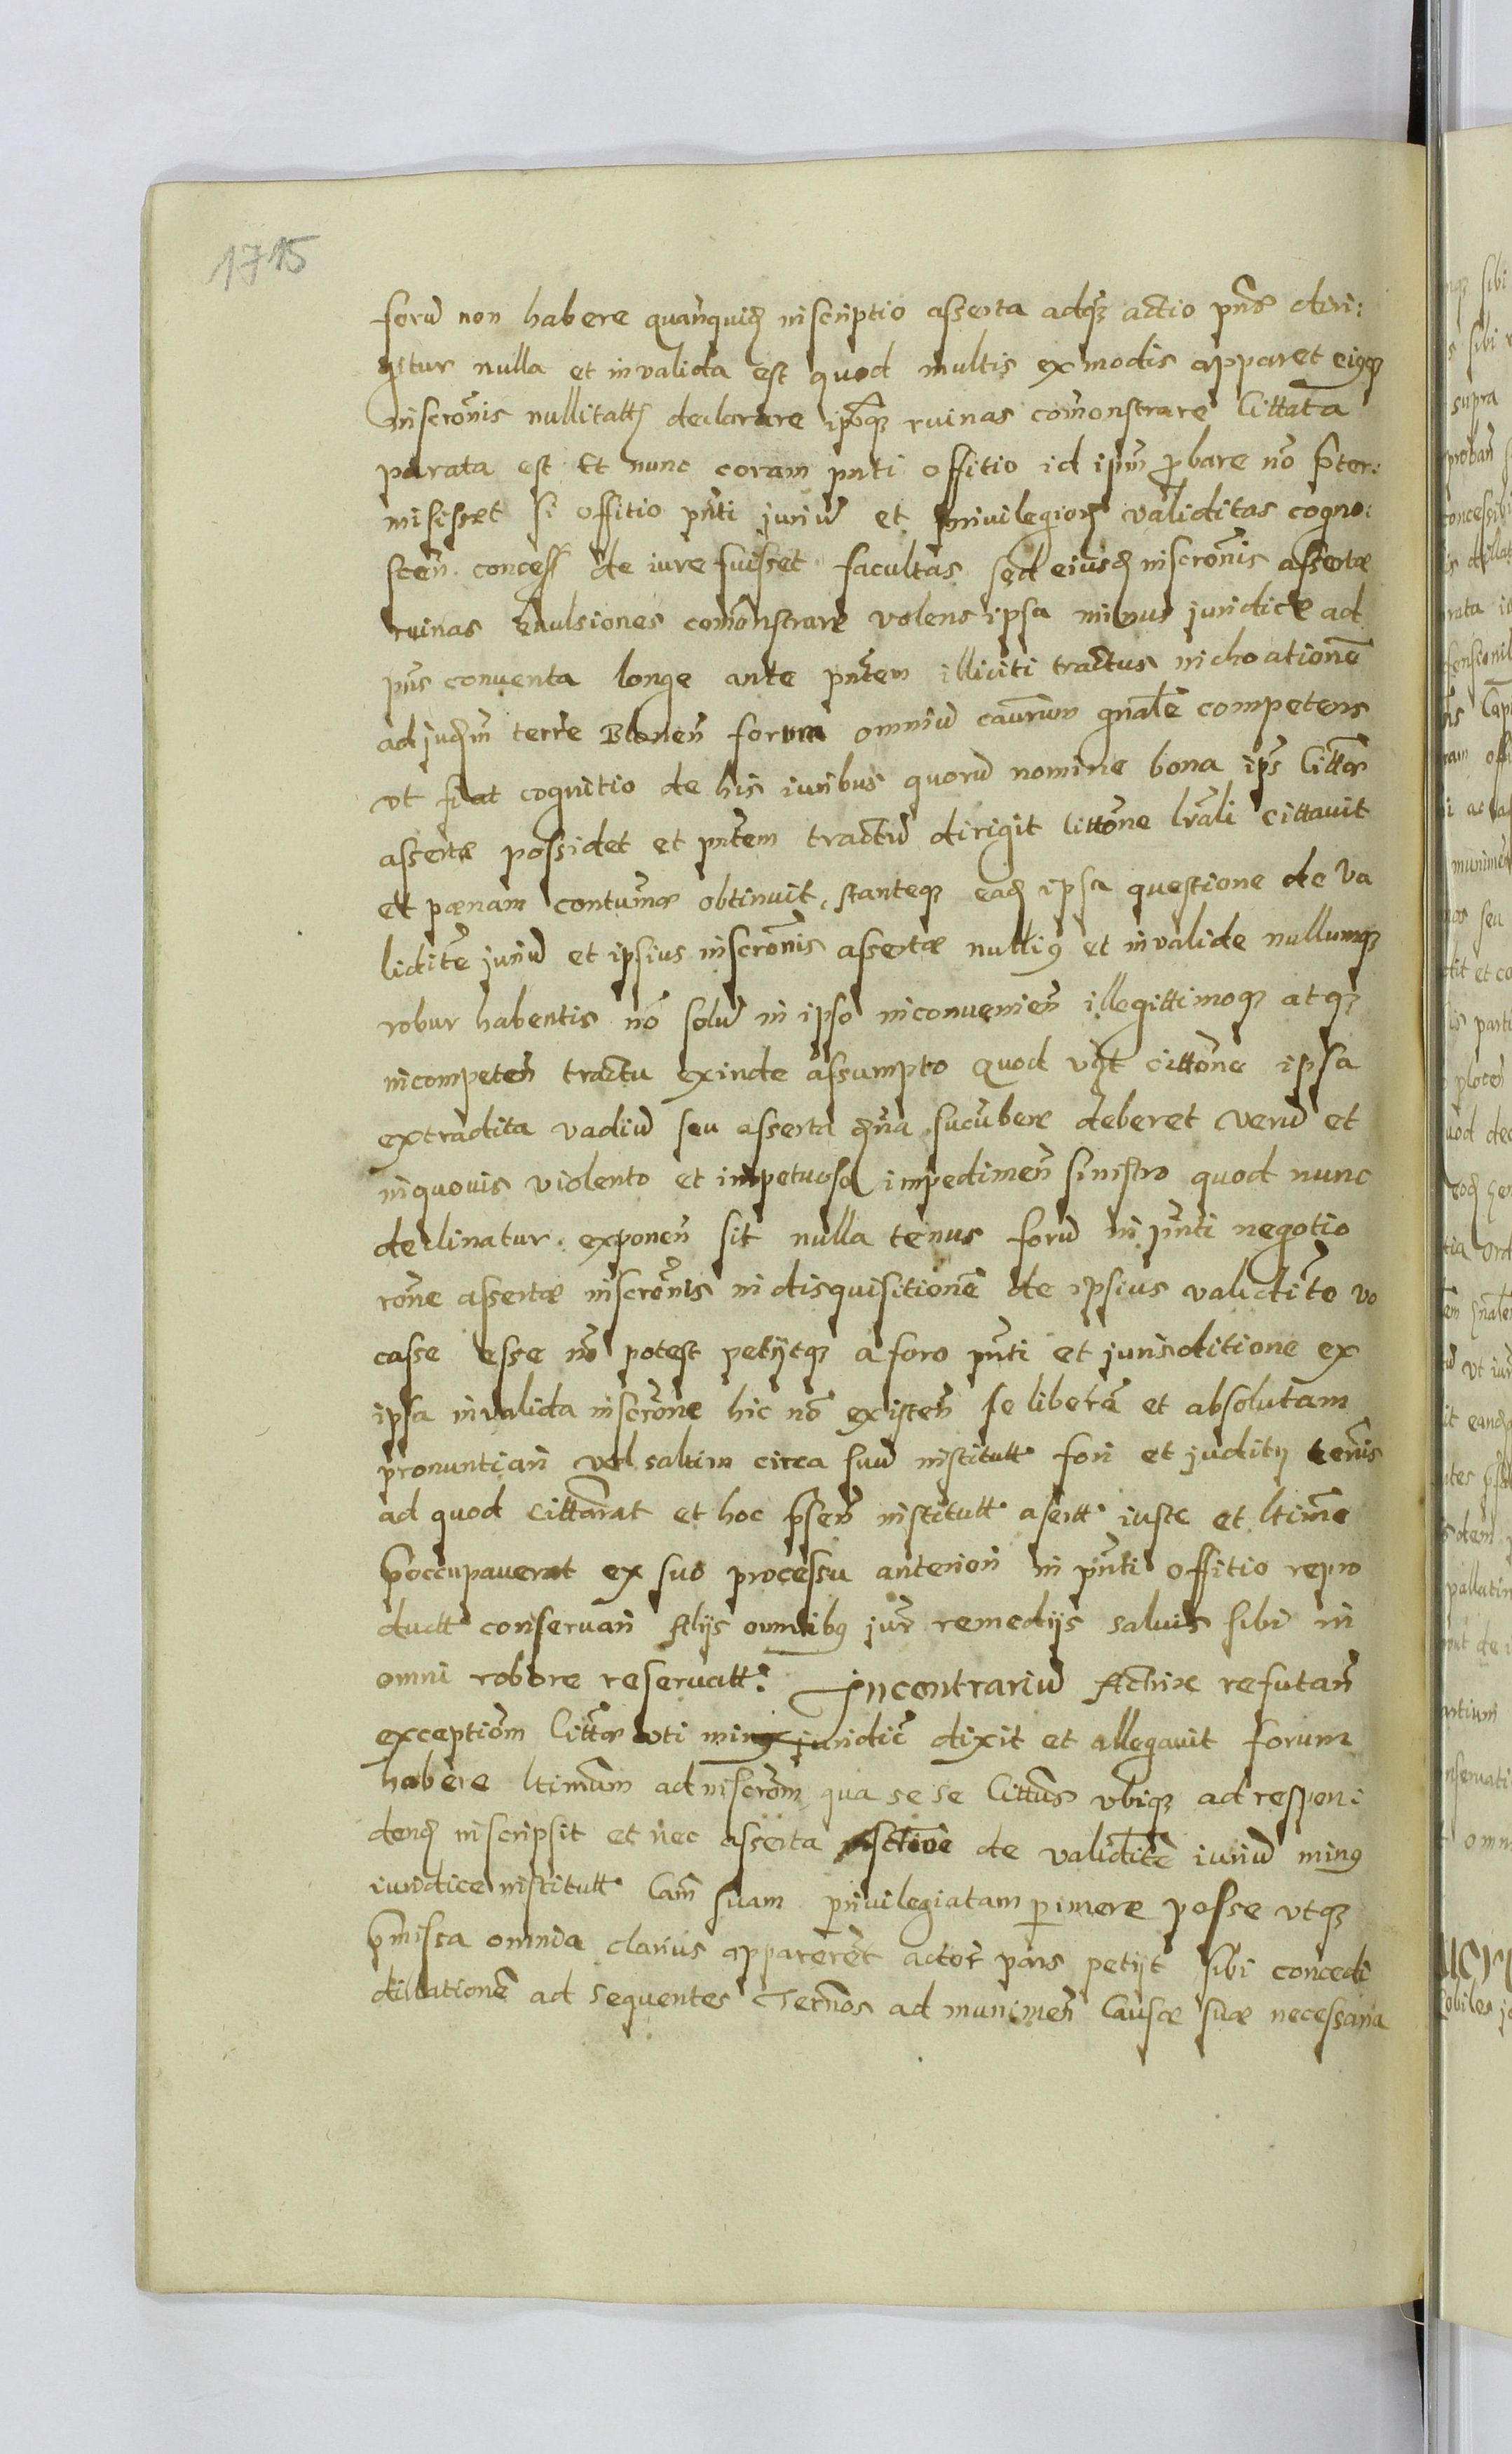 1715
forũ non habere quanquidẽ inscriptio asserta adq3 actio pñs diri:
gitur nulla et invalida est quod multis ex modis apparet eiusq3
inscrõnis nullitatẽ declarare ruinas comõnstrare Cittata
parata est Et nunc coram pñti offitio id ipm̃ probare nõ p̃ter:
misisset si offitio pñti juriũ et privilegiorũ validitas cogno:
scen̄ concess̄ de iure fuisset facultas sed eiusdẽ inscrõnis assertæ
ruinas evulsiones comõnstrare volens ipsa minus juridice ad
pñs conventa longe ante pñtem illiciti tractus inchoationẽ
ad judm̃ terre Blonen̄ forum omniũ causarum gñale competens
vt fiat cognitio de his iuribus quorũ nomine bona ips̄ Cittõs
assertæ possidet et pñtem tractũ dirigit cittõne lr̃ali cittavit
et pænam contumæ obtinuit, stanteq3 eadẽ ipsa questione de va
liditẽ juriũ et ipsius inscrõnis assertæ nulli9 et invalide nullumq3
robur habentis nõ solũ in ipso inconvenien̄ illegittimoq3 atq3
incompeten̄ tractu exinde assumpto quod cittõne ipsa
extradita vadiũ seu asserta sucũbere deberet verũ et
in quovis violento et impetuoso impedimen̄ sinistro quod nunc
declinatur exponen̄ sit nulla tenus forũ in pñti negotio
rõne assertæ inscrõnis in disquisitionẽ de ipsius validitẽ vo
casse esse nõ potest petijtq3 a foro pñti et jurisditione ex
ipsa invalida inscrõne hic nõ existen̄ se liberã et absolutam
pronuntiari vel saltim circa suũ institutt fori et juditij
ad quod cittarat et hoc p̃sen̄ institutt asertt iuste et ltimẽ
p̃occupaverat ex suo processu anteriori in pñti offitio repro
ductt conservari Alijs omnib9 jur̃ remedijs salvis sibi in
omni robore reservatt. Incontrariũ Actrix refutan̄
exceptiom̃ Cittæ uti min9 juridic̃ dixit et allegavit forum
habere ltimum ad inscrõm qua se se Cittus vbiq3 ad respon:
dendẽ inscripsit et nec asserta actiõe de validitẽ iuriũ min9
iuridice institutt Cam̃ suam privilegiatam perimere posse vtq3
p̃missa omnia clarius apparerent actor̃ pars petijt sibi concedi
dillationẽ ad sequentes Termos ad munimen̄ Causæ suæ necessaria